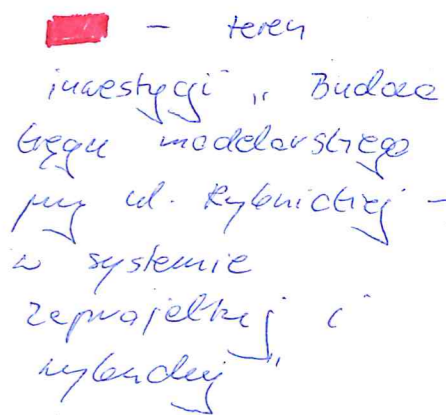 – teren
inwestycji „ Budowa
toru modelarskiego
przy ul. Rybnickiej –
w systemie
zaprojektuj i
wybuduj "